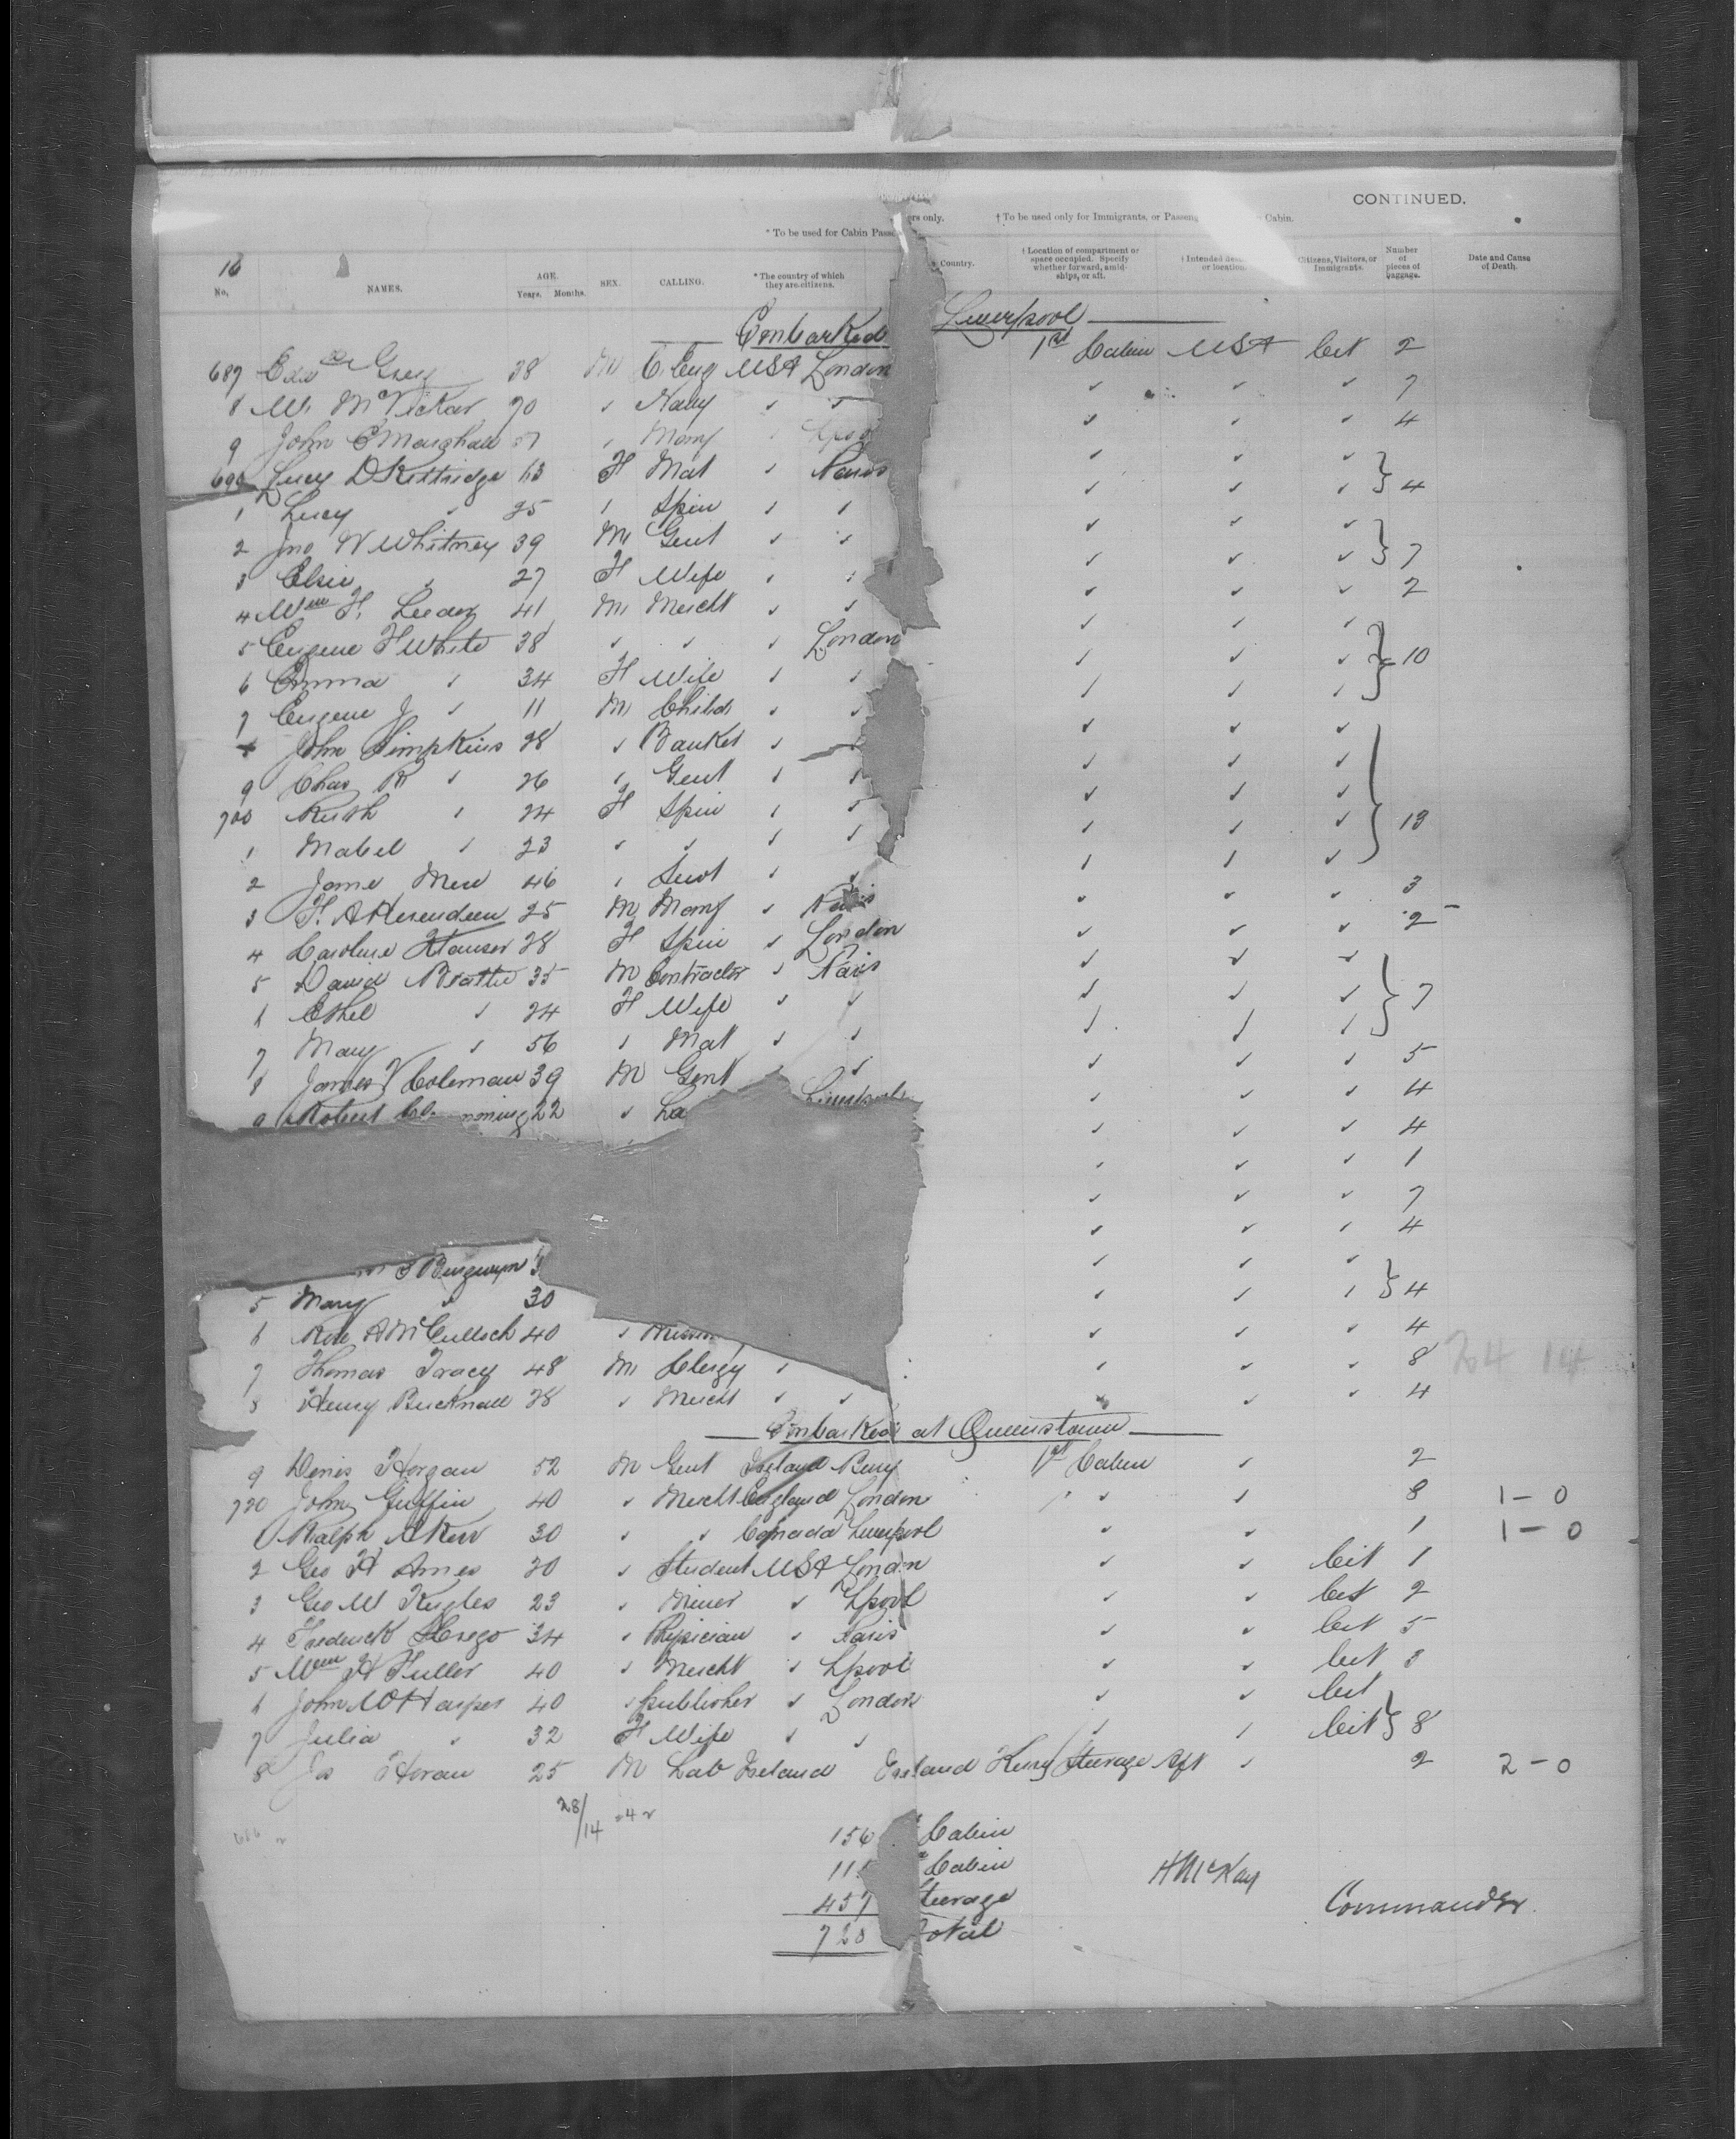 CONTINUED.
* To be used for Cabin Passe ers only. † To be used only for Immigrants, or Passeng Cabin.
16
No. NAMES. AGE. Years. Months. SEX. CALLING. * The country of which they are citizens. Country. † Location of compartment or space occupied. Specify whether forward, amidships, or aft. † Intended des or location. Citizens, Visitors, or Immigrants. Number of pieces of baggage. Date and Cause of Death.
Embarked Liverpool
687 Edwd Grey 38 M C. Eng USA London 1st Cabin USA Cit 2
8 W. McVickar 70 ✓ Navy ✓ ✓ ✓ ✓ ✓ 7
9 John C Manf ✓ ✓ ✓ ✓ 4
690 Lucy D Kittridge 63 F Mat ✓ Paris ✓ ✓ ✓ }
1 Lucy ✓ 25 ✓ Spin ✓ ✓ ✓ ✓ ✓ } 4
2 Jno W Whitney 39 M Gent ✓ ✓ ✓ ✓ ✓ }
3 Elsie ✓ 27 F Wife ✓ ✓ ✓ ✓ ✓ } 7
4 Wm F. Leeder 41 M Mercht ✓ ✓ ✓ ✓ ✓ 2
5 Eugene F White 38 ✓ ✓ ✓ London ✓ ✓ ✓ }
6 Emma ✓ 34 F Wife ✓ ✓ ✓ ✓ ✓ } 10
7 Eugene J ✓ 11 M Child ✓ ✓ ✓ ✓ ✓ }
John Simpkins 28 ✓ Banker ✓ ✓ ✓ ✓ }
9 Chas R ✓ 26 ✓ Gent ✓ ✓ ✓ ✓ ✓
700 Ruth ✓ 24 F Spin ✓ ✓ ✓ ✓ ✓
1 Mabel ✓ 23 ✓ ✓ ✓ ✓ ✓ ✓ ✓ } 13
2 Jame Mew 46 ✓ Sevt ✓ ✓ ✓ ✓ ✓
3 F. A Herendeen 25 M Manf ✓ Paris ✓ ✓ ✓ 3
4 Caroline Hauser 28 F Spin ✓ London ✓ ✓ ✓ 2
5 David Beattie 35 M Contractor ✓ Paris ✓ ✓ ✓ }
6 Ethel ✓ 24 F Wife ✓ ✓ ✓ ✓ ✓ } 7
7 Mary ✓ 56 ✓ Mat ✓ ✓ ✓ ✓ ✓ }
8 James V Coleman 39 M Gent ✓ ✓ ✓ ✓ 5
9 Robert nning 22 ✓ La ✓ ✓ ✓ 4
✓ ✓ ✓ 4
✓ ✓ ✓ 1
✓ ✓ ✓ 7
✓ ✓ ✓ 4
S Burgwyn 3 ✓ ✓ ✓ }
5 Mary ✓ 30 ✓ ✓ ✓ } 4
6 Rose A McCulloch 40 ✓ ✓ ✓ ✓ 4
7 Thomas Tracy 48 M Clergy ✓ ✓ ✓ ✓ 8
8 Henry Bucknall 28 ✓ Mercht ✓ ✓ ✓ ✓ ✓ 4
Embarked at Queenstown
9 Denis Horgan 52 M Gent Ireland 1st Cabin ✓ 2
720 John Griffin 40 ✓ Mercht England London ✓ ✓ 8 1 – 0
1 Ralph A Kerr 30 ✓ ✓ Canada Liverpool ✓ ✓ 1 1 – 0
2 Geo H Ames 20 ✓ Student USA London ✓ ✓ Cit 1
3 Geo W Kugles 23 ✓ Miner ✓ Lpool ✓ ✓ Cit 2
4 Frederick 34 ✓ Physician ✓ Paris ✓ ✓ Cit 5
5 Wm H Fuller 40 ✓ Mercht ✓ Lpool ✓ ✓ Cit 3
6 John W Harper 40 ✓ Publisher ✓ London ✓ ✓ Cit }
7 Julia ✓ 32 F Wife ✓ ✓ ✓ ✓ Cit } 8
8 Jas Horan 25 M Lab Ireland Ireland Kerry Steerage Aft ✓ 2 2 – 0
28/14
156 Cabin
11 Cabin
457 Steerage
728 Total
H McKay
Commander